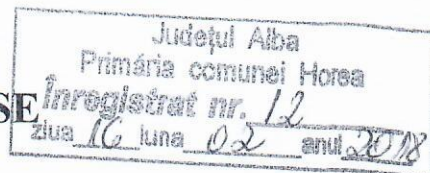 Județul Alba
Primăria comunei Horea
SE
Înregistrat nr. 12
ziua 16 luna 02 anul 2018